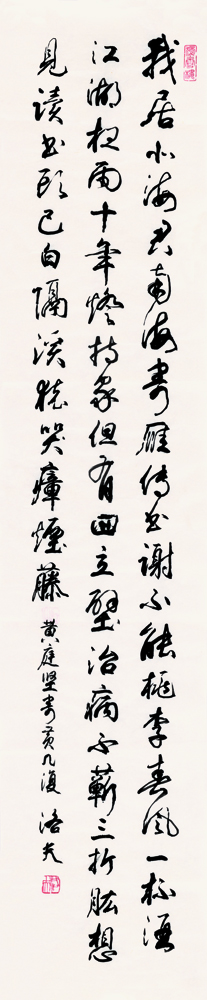 我居北海君南海寄雁传书谢不能桃李春风一杯酒
江湖夜雨十年燈持家但有四立壁治病不蕲三折肱想
见读书头已白隔溪猿哭瘴煙藤 黄庭坚寄黄几復 洛夫